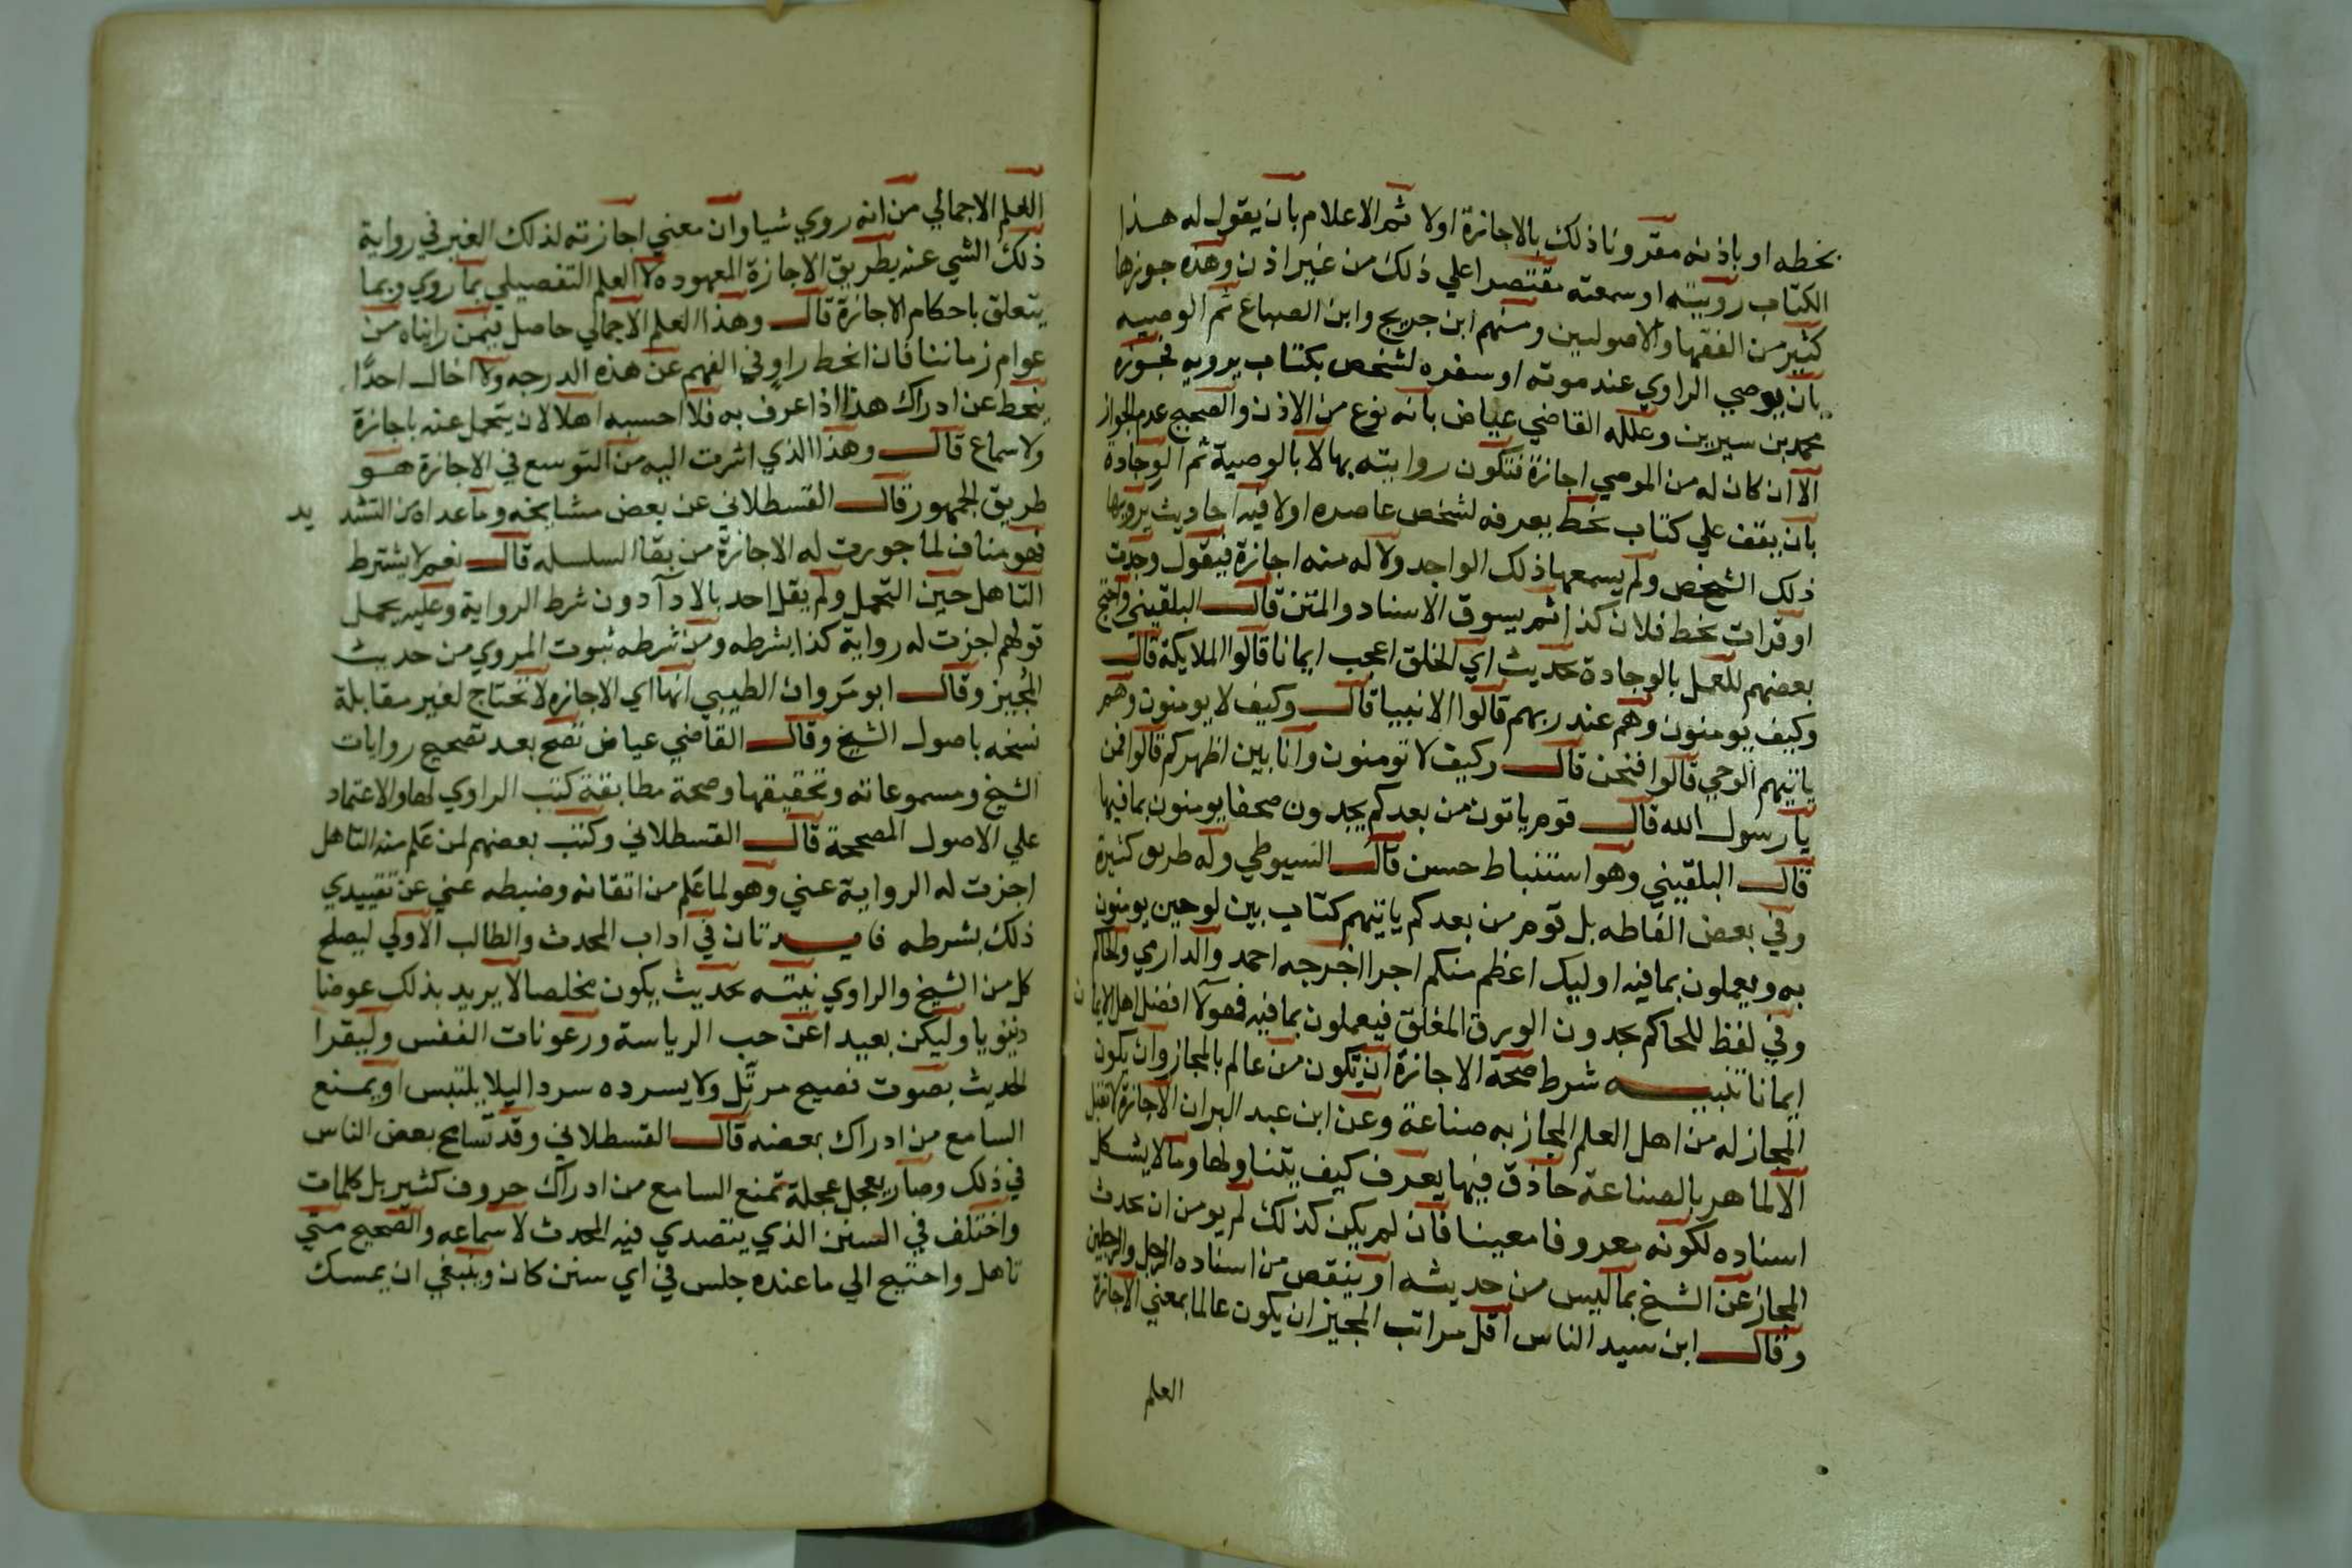 بخطه او باذنه مقرونا ذلك بالاجازة اولا ثم الاعلام بان يقول له هذا
الكتاب رويته او سمعته مقتصرا علي ذلك من غير اذن وهذه جوزها
كثير من الفقها والاصوليين ومنهم ابن جريج وابن الصباغ ثم الوصيه
بان يوصي الراوي عند موته او سفره لشخص بكتاب يرويه فجوزه
محمد بن سيرين وعلله القاضي عياض بانه نوع من الاذن والصحيح عدم الجواز
الا ان كان له من الموصي اجازة فتكون روايته بها لا بالوصية ثم الوجادة
بان يقف علي كتاب بخط يعرفه لشخص عاصره اولا فيه احاديث يرويها
ذلك الشخص ولم يسمعها ذلك الواجد ولا له منه اجازة فيقول وجدت
او قرات بخط فلان كذا ثم يسوق الاسناد والمتن قال البلقيني واحتج
بعضهم للعمل بالوجادة حديث اي الخلق اعجب ايمانا قالوا الملايكة قال
وكيف يومنون وهم عند ربهم قالوا الانبيا قال وكيف لا يومنون وهم
ياتيهم الوحي قالوا فنحن قال وكيف لا تومنون وانا بين اظهركم قالوا فمن
يا رسول الله قال قوم ياتون من بعدكم يجدون صحفا يومنون بما فيها
قال البلقيني وهو استنباط حسن قال السيوطي وله طريق كثيرة
وفي بعض الفاظه بل قوم من بعدكم ياتيهم كتاب بين لوحين يومنون
به ويعملون بما فيه اوليك اعظم منكم اجرا اخرجه احمد والدارمي والحاكم
وفي لفظ للحاكم يجدون الورق المغلق فيعملون بما فيه فهولآ افضل اهل الايمان
ايمانا تنبيه شرط صحة الاجازة ان تكون من عالم بالمجاز وان يكون
المجاز له من اهل العلم المجاز به صناعة وعن ابن عبد البر ان الاجازة لا تقبل
الا لماهر بالصناعة حاذق فيها يعرف كيف يتناولها وما لا يشكل
اسناده لكونه معروفا معينا فان لم يكن كذلك لم يومن ان يحدث
المجاز عن الشيخ بما ليس من حديثه او ينقص من اسناده الرجل والرجلين
وقال ابن سيد الناس اقل مراتب المجيز ان يكون عالما بمعني الاجازة
العلم
العلم الاجمالي من انه روي شيا وان معني اجازته لذلك الغير في رواية
ذلك الشي عنه بطريق الاجازة المعهوده لا العلم التفصيلي بما روي وبما
يتعلق باحكام الاجازة قال وهذا العلم الاجمالي حاصل فيمن راناه من
عوام زماننا فان انحط راو في الفهم عن هذه الدرجه ولا اخال احدًا
ينحط عن ادراك هذا اذا عرف به فلا احسبه اهلا لان يتحمل عنه باجازة
ولا سماع قال وهذا الذي اشرت اليه من التوسع في الاجازة هو
طريق الجمهور قال القسطلاني عن بعض مشايخه وما عداه من التشديد
فهو مناف لما جورت له الاجازة من بقا السلسله قال نعم لا يشترط
التاهل حين التحمل ولم يقل احد بالادآ دون شرط الرواية وعليه يحمل
قولهم اجزت له رواية كذا بشرطه ومن شرطه ثبوت المروي من حديث
المجيز وقال ابو مروان الطيبي انها اي الاجازه لا تحتاج لغير مقابلة
نسخه باصول الشيخ وقال القاضي عياض تصح بعد تصحيح روايات
الشيخ ومسموعاته وتحقيقها وصحة مطابقة كتب الراوي لها والاعتماد
علي الاصول المصححة قال القسطلاني وكتب بعضهم لمن علم منه التاهل
اجزت له الرواية عني وهو لما علم من اتقانه وضبطه غني عن تقييدي
ذلك بشرطه فايدتان في اداب المحدث والطالب الاولي ليصلح
كل من الشيخ والراوي نيته بحديث يكون مخلصا لا يريد بذلك عوضا
دنيويا وليكن بعيدا عن حب الرياسة ورعونات النفس وليقرا
الحديث بصوت فصيح مرتل ولا يسرده سردا ليلا يلتبس او يمنع
السامع من ادراك بعضه قال القسطلاني وقد تسامح بعض الناس
في ذلك وصار يعجل عجلة تمنع السامع من ادراك حروف كثير بل كلمات
واختلف في السن الذي يتصدي فيه المحدث لاسماعه والصحيح متي
تاهل واحتيج الي ما عنده جلس في اي سن كان وينبغي ان يمسك